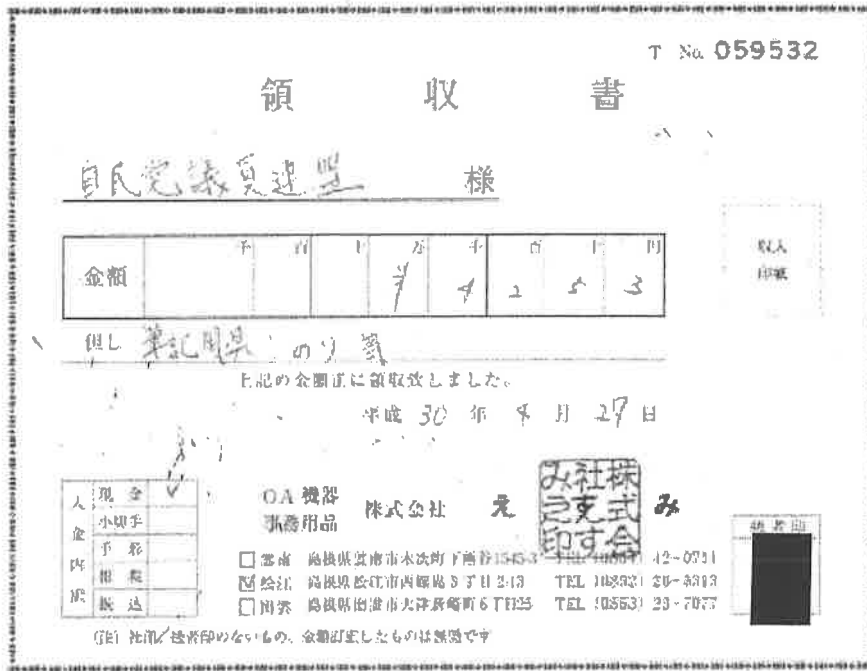 T No. 059532
領 収 書
自民党議員連盟 様
千 百 十 万 千 百 十 円
金額 4 2 5 3
収入
印紙
但し 筆記用具 のり 等
上記の金額正に領収致しました。
平成 30 年 4 月 27 日
入金内訳
現金 ✓
小切手
手形
相殺
振込
OA機器
事務用品
株式会社 え す み
株式会社えすみ之印
扱者印
□ 雲南 島根県雲南市木次町下熊谷1545-3 42-0751
☑ 松江 島根県松江市西嫁島3丁目2-13 TEL (0852)
□ 出雲 島根県出雲市大津長崎町6丁目 TEL (0853) 23-7077
(注) 社印/扱者印のないもの、金額訂正したものは無効です